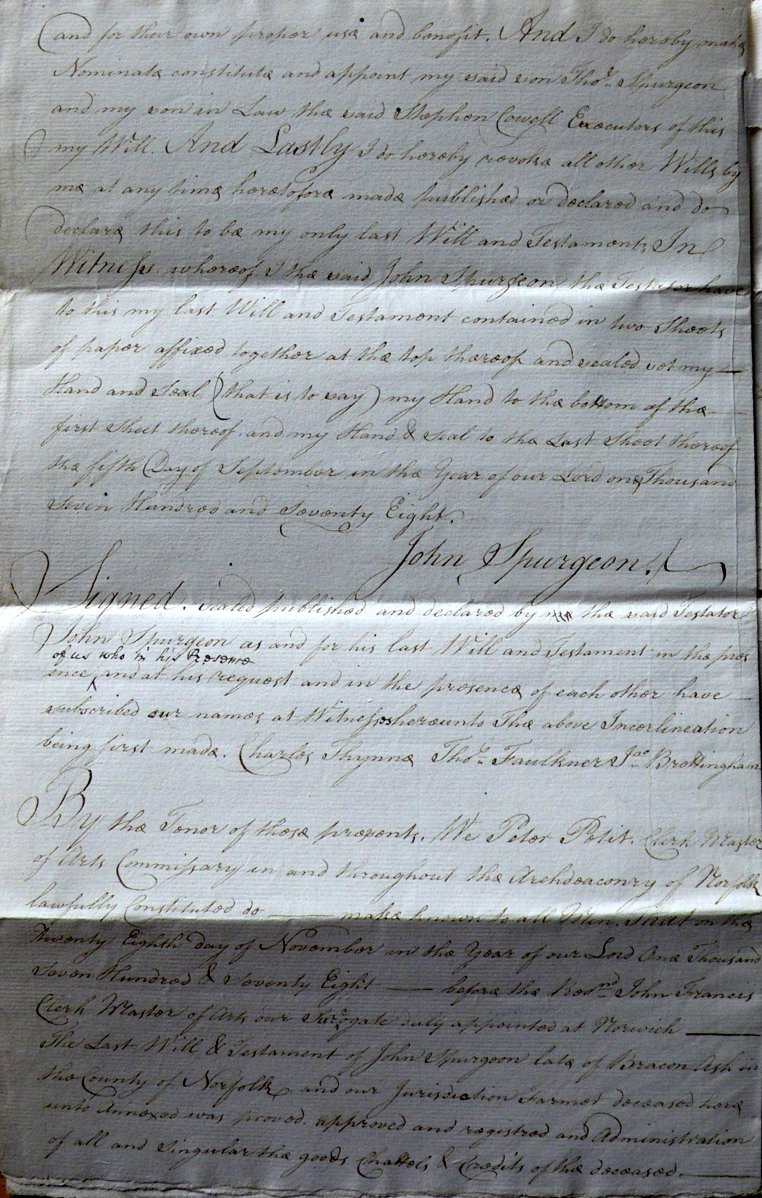 and for their own proper use and benefit. And I do hereby make
Nominate constitute and appoint my said son Tho.s Spurgeon
and my son in Law the said Stephen Cowell Executors of this
my Will. And Lastly I do hereby revoke all other Wills by
me at any time heretofore made published or declared and do
declare this to be my only last Will and Testament, In
Witness whereof I the said John Spurgeon the Testator have
to this my last Will and Testament contained in two Sheets
of paper affixed together at the top thereof and sealed set my —
Hand and Seal (that is to say) my Hand to the bottom of the —
first Sheet thereof and my Hand & Seal to the Last Sheet thereof
the fifth Day of September in the Year of our Lord one Thousand
Seven Hundred and Seventy Eight.
John Spurgeon.
Signed. Sealed published and declared by the said Testator
John Spurgeon as and for his last Will and Testament in the pres
of us who in his Presence
ence and at his request and in the presence of each other have —
subscribed our names as Witnesses hereunto The above Interlineation
being first made. Charles Thynne Tho.s Faulkner J.no Brettingham
By the Tenor of these presents. We Peter Petit. Clerk Master
of Arts Commissary in and throughout the Archdeaconry of Norfolk
lawfully Constituted do — make known to all Men, that on the
Twenty Eighth day of November in the Year of our Lord One Thousand
Seven Hundred & Seventy Eight — before the Rev.nd John Francis
Clerk Master of Arts our Surrogate duly appointed at Norwich —
The Last Will & Testament of John Spurgeon late of Bracon Ash in
the County of Norfolk and our Jurisdiction Farmer deceased here
unto Annexed was proved. approved and registred and Administration
of all and Singular the goods Chattels & Credits of the deceased. —